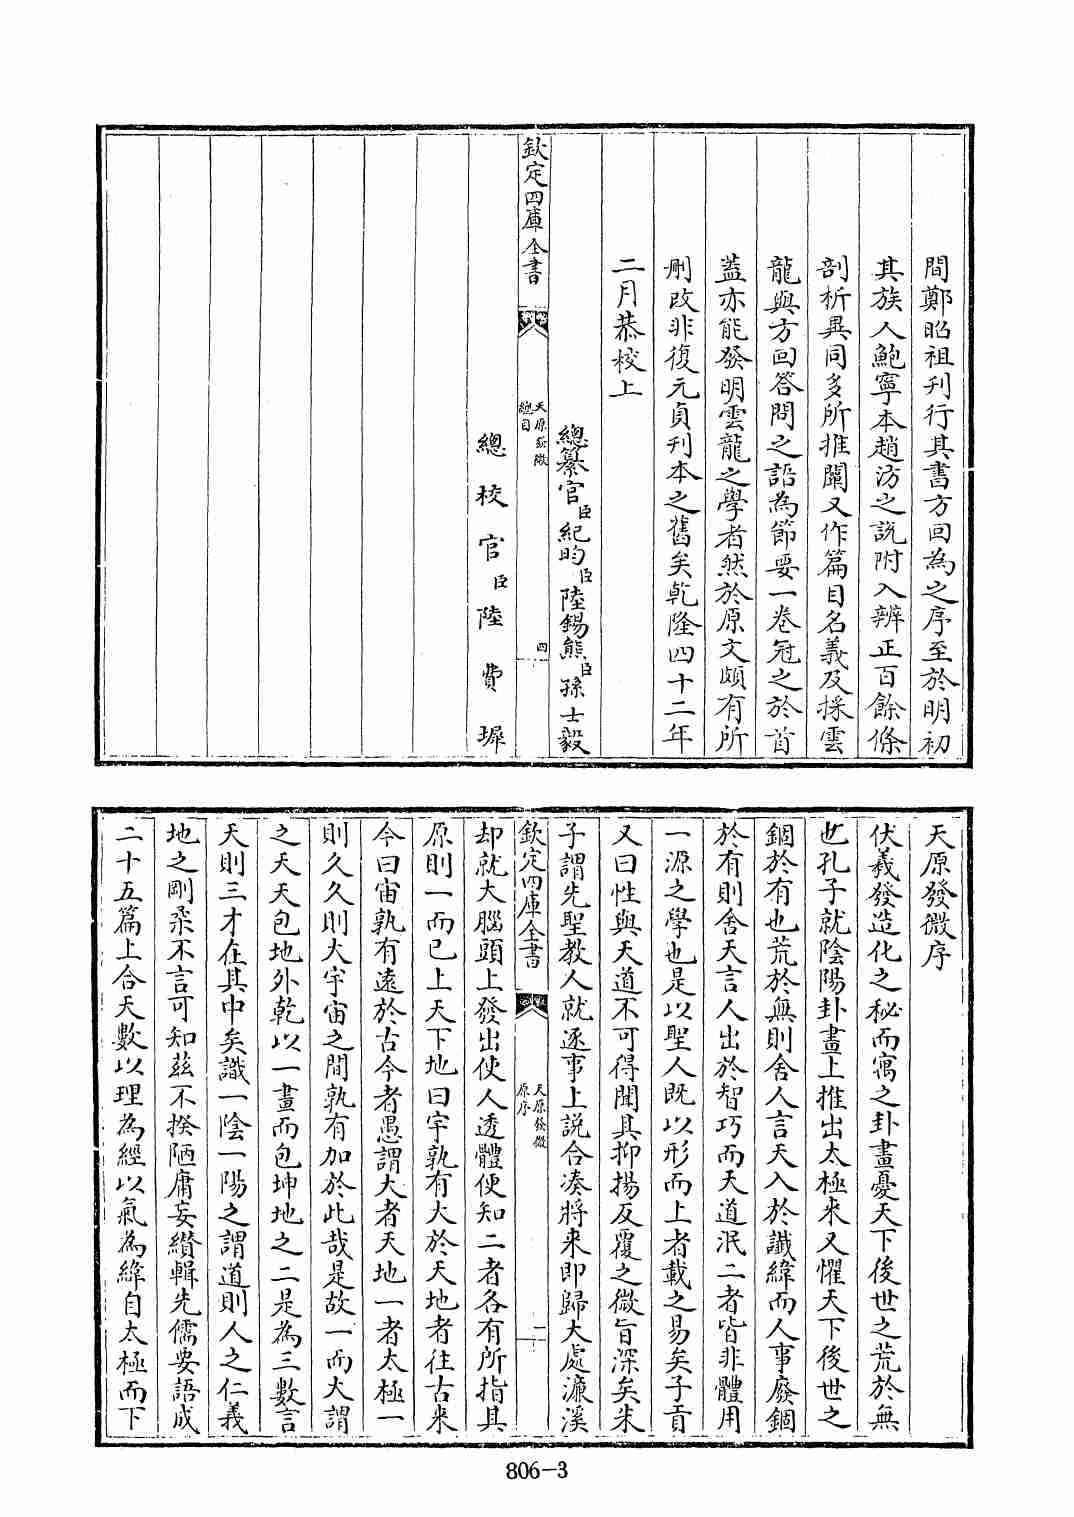 間鄭昭祖刋行其書方回為之序至於明初
其族人鮑寧本趙汸之説附入辨正百餘條
剖析異同多所推闡又作篇目名義及採雲
龍與方回答問之語為節要一卷冠之於首
蓋亦能發明雲龍之學者然於原文頗有所
刪改非復元貞刋本之舊矣乾隆四十二年
二月恭校上
總纂官臣紀昀臣陸錫熊臣孫士毅
欽定四庫全書
天原發微
總目
四
總校官臣陸費墀
天原發微序
伏羲發造化之秘而寓之卦畫憂天下後世之荒於無
也孔子就陰陽卦畫上推出太極来又懼天下後世之
錮於有也荒於無則舍人言天入於讖緯而人事廢錮
於有則舍天言人出於智巧而天道泯二者皆非體用
一源之學也是以聖人既以形而上者載之易矣子貢
又曰性與天道不可得聞其抑揚反覆之微旨深矣朱
子謂先聖教人就逐事上説合湊將来即歸大處濂溪
欽定四庫全書
天原發微
原序
一
却就大腦頭上發出使人透體便知二者各有所指其
原則一而已上天下地曰宇孰有大於天地者往古来
今曰宙孰有遠於古今者愚謂大者天地一者太極一
則久久則大宇宙之間孰有加於此哉是故一而大謂
之天天包地外乾以一畫而包坤地之二是為三數言
天則三才在其中矣識一陰一陽之謂道則人之仁義
地之剛柔不言可知茲不揆陋庸妄纘輯先儒要語成
二十五篇上合天數以理為經以氣為緯自太極而下
806-3